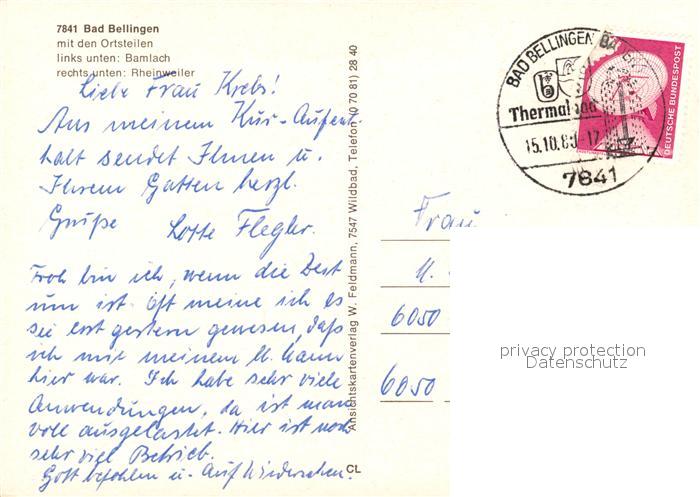 7841 Bad Bellingen
mit den Ortsteilen
links unten: Bamlach
rechts unten: Rheinweiler
Liebe Frau Krebs!
Aus meinem Kur-Aufent-
halt sendet Ihnen u.
Ihrem Gatten herzl.
Grüße Lotte Flegler.
Froh bin ich, wenn die Zeit
um ist. Oft meine ich es
sei erst gestern gewesen, daß
ich mit meinem M. Mann
hier war. Ich habe sehr viele
Anwendungen, da ist man
voll ausgelastet. Hier ist noch
sehr viel Betrieb.
Gott befohlen u. Auf Wiedersehen!
Ansichtskartenverlag W. Feldmann, 7547 Wildbad, Telefon (0 70 81) 28 40
CL
BAD BELLINGEN
Thermalbad
15.10.80-17
7841
DEUTSCHE BUNDESPOST
Frau
6050
6050
privacy protection
Datenschutz